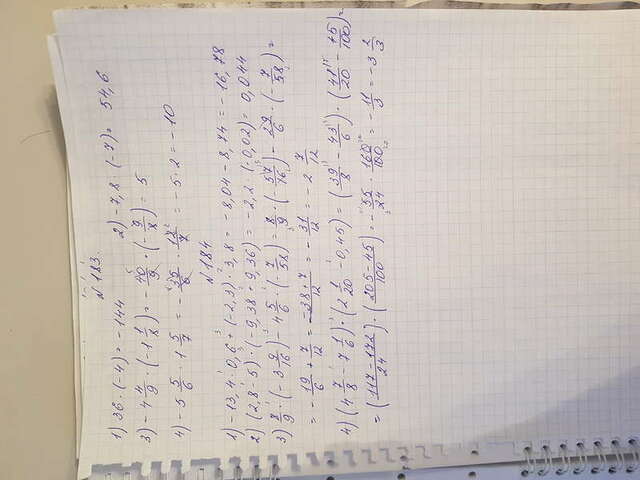 N 183.
1) 36 · (-4) = -144 2) -7,8 · (-7) = 54,6
3) -4 4/9 · (-1 1/8) = -40/9 · (-9/8) = 5
4) -5 5/6 · 1 5/7 = -35/6 · 12/7 = -5 · 2 = -10
N 184
1) -13,4 · 0,6 + (-2,3) · 3,8 = -8,04 - 8,74 = -16,78
2) (2,8 - 5) · (-9,38 + 9,36) = -2,2 · (-0,02) = 0,044
3) 8/9 · (-3 9/16) - 4 5/6 · (-7/58) = 8/9 · (-57/16) - 29/6 · (-7/58) =
= -19/6 + 7/12 = (-38+7)/12 = -31/12 = -2 7/12
4) (4 7/8 - 7 1/6) · (2 1/20 - 0,45) = (39/8 - 43/6) · (41/20 - 45/100) =
= (117-172/24) · (205-45/100) = -55/24 · 160/100 = -11/3 = -3 2/3